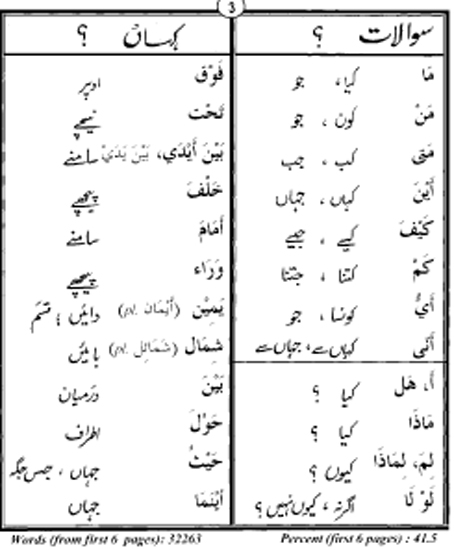 3
سوالات ؟
مَا کیا، جو
مَنْ کون ، جو
مَتٰى کب ، جب
أَيْنَ کہاں ، جہاں
كَيْفَ کیسے ، جیسے
كَمْ کتنا ، جتنا
أَيُّ کونسا ، جو
أَنّٰى کہاں سے، جہاں سے
أ، هَل کیا ؟
مَاذَا کیا ؟
لِمَ، لِمَاذَا کیوں ؟
لَوْ لَا اگر نہ ، کیوں نہیں ؟
کہاں ؟
فَوْق اوپر
تَحْت نیچے
بَيْنَ أَيْدَي، بَيْنَ يَدَيْ سامنے
خَلْفَ پیچھے
أَمَامَ سامنے
وَرَاء پیچھے
يَمِيْن (أَيْمَان .pl) دائیں ؛ قسم
شِمَال (شَمَائِل .pl) بائیں
بَيْنَ درمیان
حَوْلَ اطراف
حَيْثُ جہاں ، جس جگہ
أَيْنَمَا جہاں
Words (from first 6 pages): 32263
Percent (first 6 pages) : 41.5